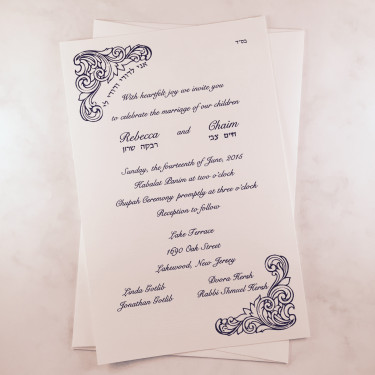 בס״ד
אני לדודי ודודי לי
With heartfelt joy we invite you
to celebrate the marriage of our children
Rebecca and Chaim
רבקה שרון חיים צבי
Sunday, the fourteenth of June, 2015
Kabalat Panim at two o'clock
Chupah Ceremony promptly at three o'clock
Reception to follow
Lake Terrace
1690 Oak Street
Lakewood, New Jersey
Linda Gotlib Dvora Hersh
Jonathan Gotlib Rabbi Shmuel Hersh